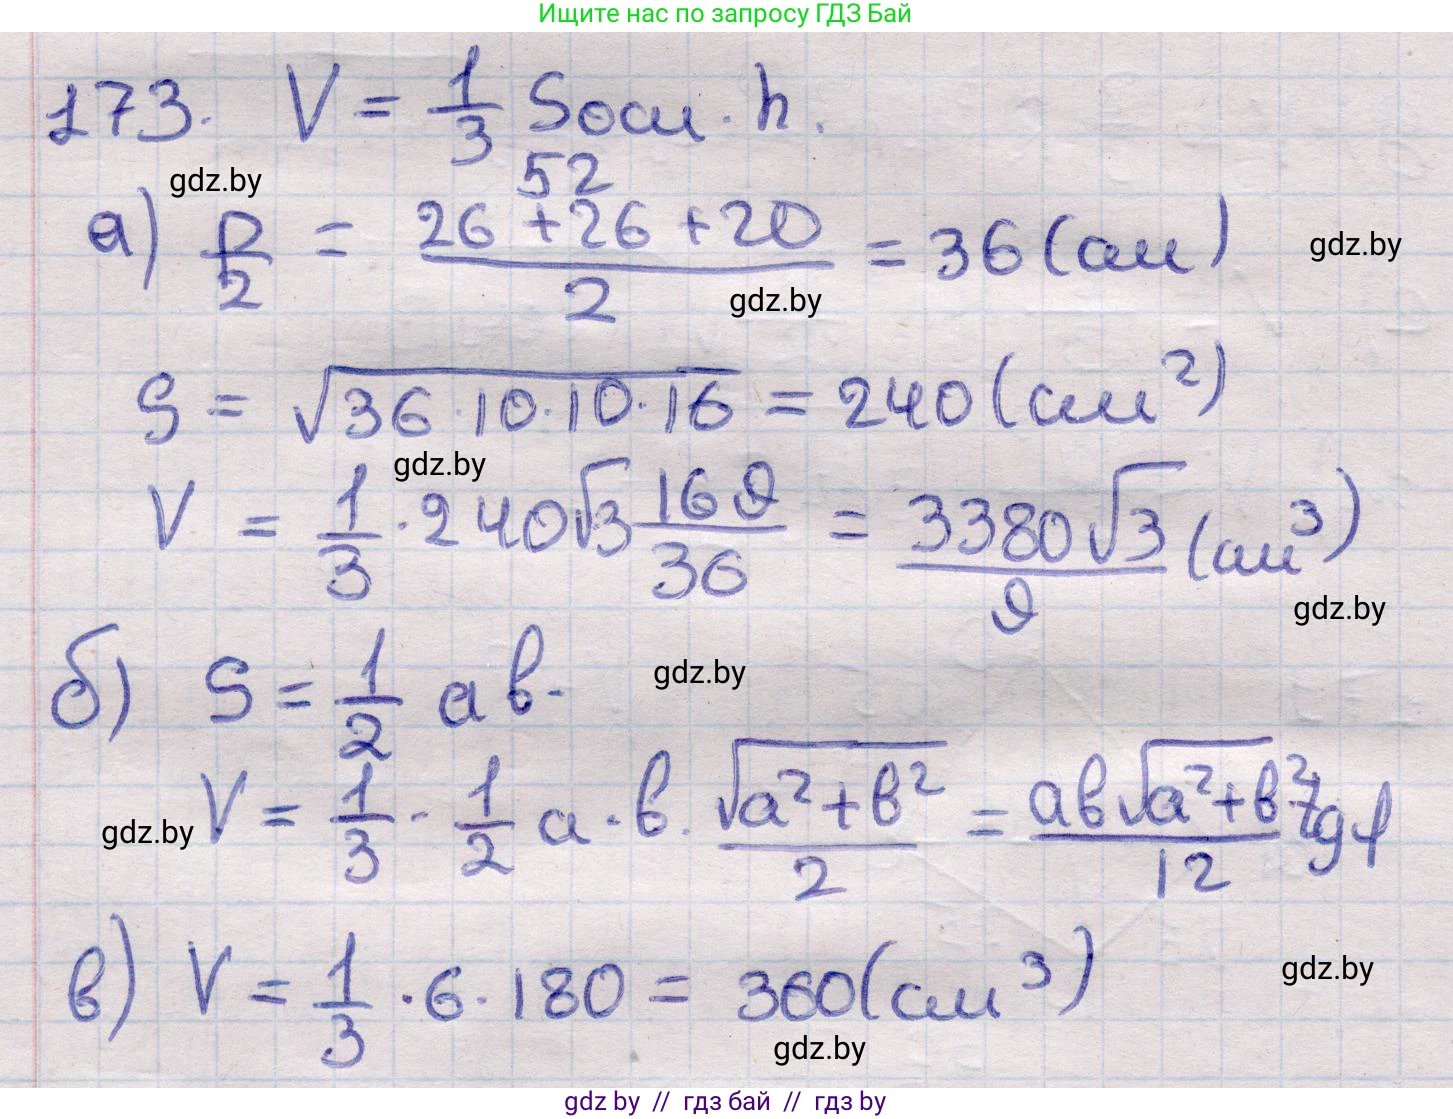 Ищите нас по запросу ГДЗ Бай
173. V = 1/3 Sосн · h.
gdz.by
52
а) p/2 = (26 + 26 + 20)/2 = 36 (см)
gdz.by
gdz.by
S = √(36·10·10·16) = 240 (см²)
gdz.by
V = 1/3 · 240√3 169/36 = 3380√3/9 (см³)
gdz.by
б) S = 1/2 ab.
gdz.by
V = 1/3 · 1/2 a · b · √(a²+b²)/2 = ab√(a²+b²)/12 tgφ
gdz.by
в) V = 1/3 · 6 · 180 = 360 (см³)
gdz.by
gdz.by
gdz by // гдз бай // гдз by